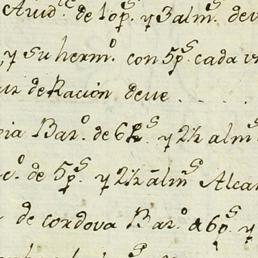 Auid.ᶜ de 10p.ˢ y 3 alm.ˢ dev
y su herm.º con 5p.ˢ cada vn
de Racion deue . . . .
Bar.º de 6p.ˢ y 2½ alm.ˢ
de 5p.ˢ y 2½ alm.ˢ Alcan
de cordova Bar.º d 6p.ˢ y